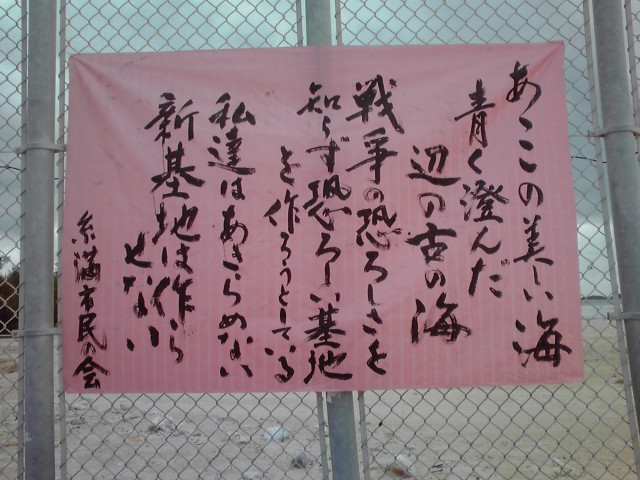 あここの美しい海
青く澄んだ
辺の古の海
戦争の恐ろしさを
知らず恐ろしい基地
を作ろうとしている
私達はあきらめない
新基地は作ら
せない
糸満市民の会